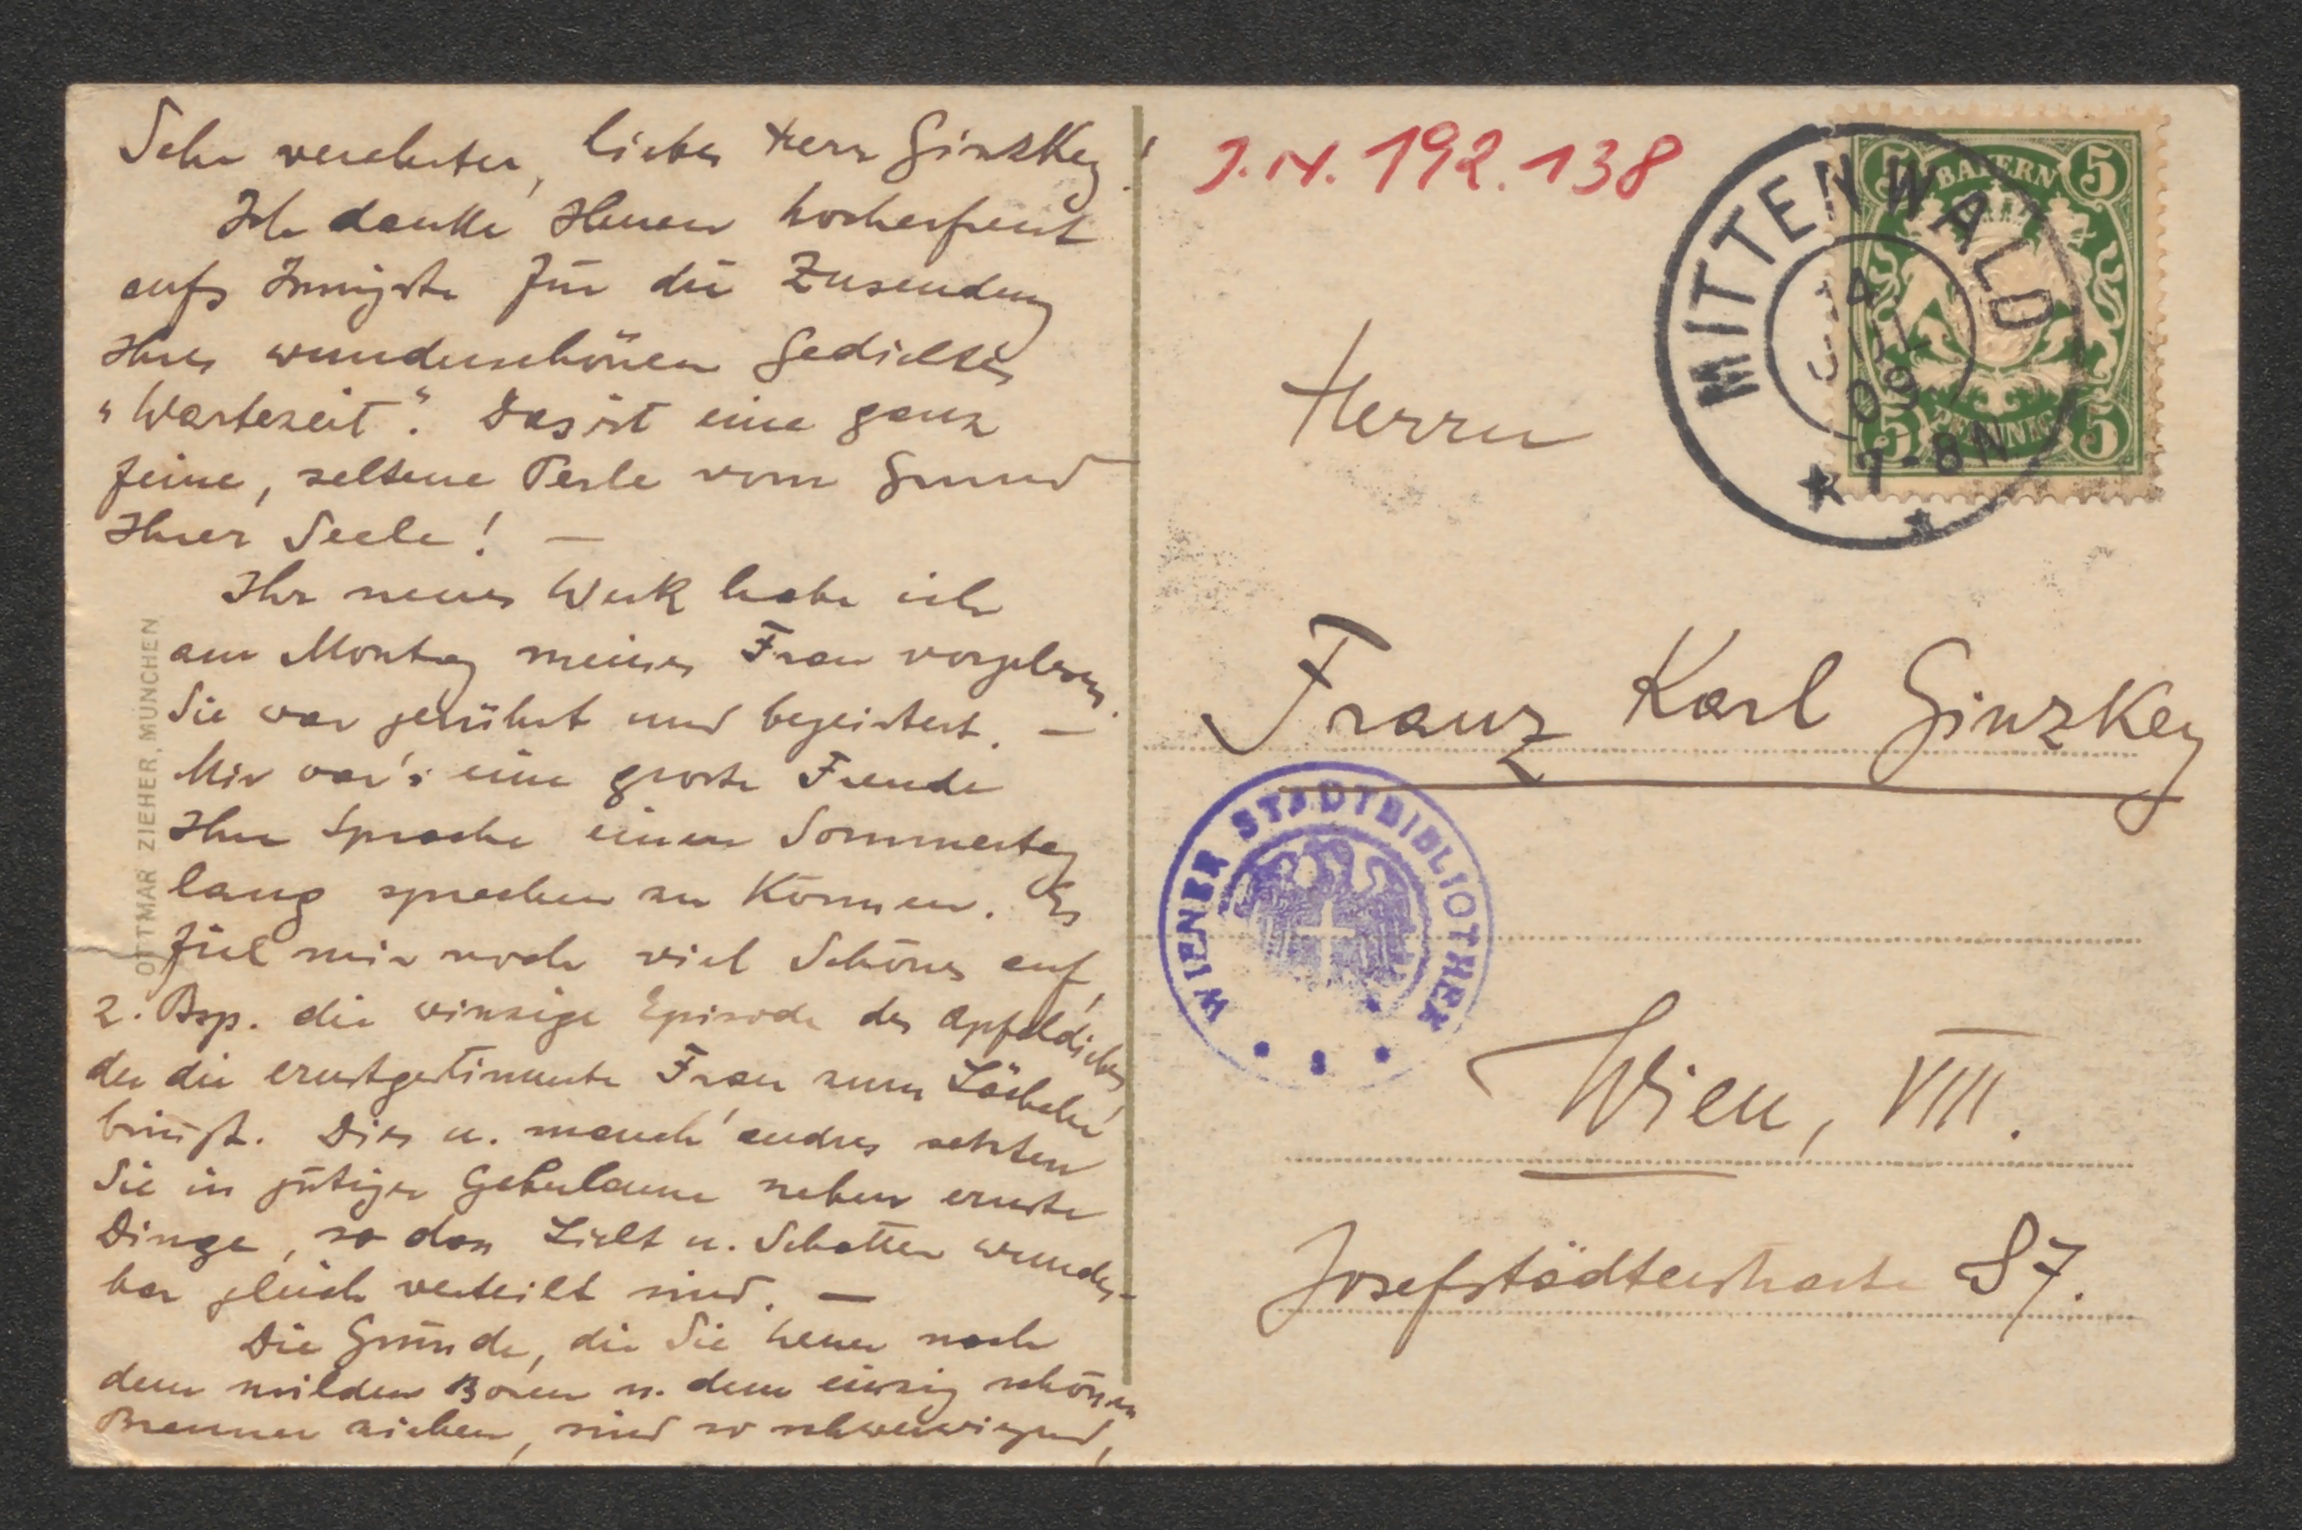 Sehr verehrter, lieber Herr Ginzkey!
Ich danke Ihnen hocherfreut
aufs Innigste für die Zusendung
Ihres wunderschönen Gedichtes
"Wartezeit". Das ist eine ganz
feine, seltene Perle vom Grund
Ihrer Seele! —
Ihr neues Werk habe ich
am Montag meiner Frau vorgelesen.
Sie war gerührt und begeistert. —
Mir war's eine grosse Freude
Ihre Sprache einen Sommertag
lang sprechen zu können. Es
fiel mir noch viel Schönes auf,
z. Bsp. die winzige Episode des Apfeldiebes
der die ernstgestimmte Frau zum Lächeln
bringt. Dies u. manch' andres setzten
Sie in gütiger Geberlaune neben ernste
Dinge, so dass Licht u. Schatten wunder-
bar gleich verteilt sind. —
Die Gründe, die Sie heuer nach
dem milden Bozen u. dem einzig schönen
Brenner ziehen, sind so schwerwiegend,
OTTMAR ZIEHER, MÜNCHEN
J.N. 192.138
BAYERN
5 5
5 PFENNIG 5
MITTENWALD
4
09
7-8 N
Herrn
Franz Karl Ginzkey
WIENER STADTBIBLIOTHEK
Wien, VIII.
Josefstädterstrasse 87.